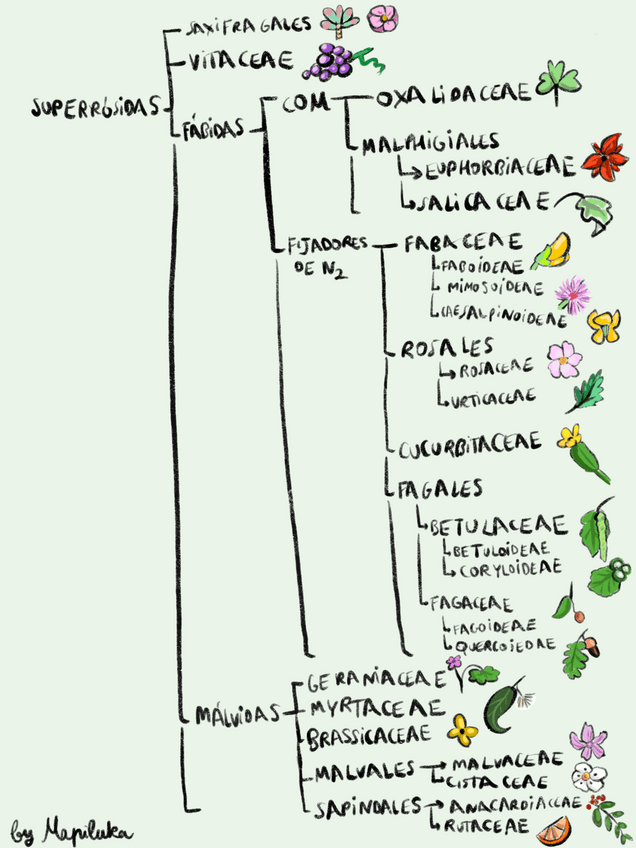 SAXIFRAGALES
VITACEAE
SUPERRÓSIDAS
FÁBIDAS
COM
OXALIDACEAE
MALPHIGIALES
EUPHORBIACEAE
SALICACEAE
FIJADORES
DE N2
FABACEAE
FABOIDEAE
MIMOSOIDEAE
CAESALPINOIDEAE
ROSALES
ROSACEAE
URTICACEAE
CUCURBITACEAE
FAGALES
BETULACEAE
BETULOIDEAE
CORYLOIDEAE
FAGACEAE
FAGOIDEAE
QUERCOIEDAE
MÁLVIDAS
GERANIACEAE
MYRTACEAE
BRASSICACEAE
MALVALES
MALVACEAE
CISTACEAE
SAPINDALES
ANACARDIACEAE
RUTACEAE
by Mapiluka